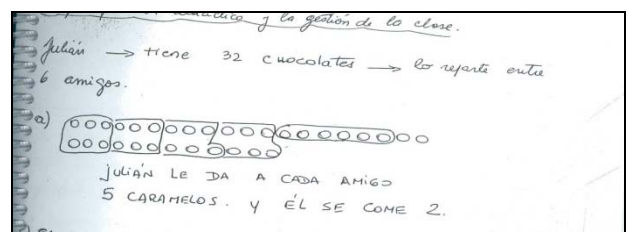 y la gestión de la clase.
Julián → tiene 32 chocolates → lo reparte entre
6 amigos.
a)
JULIÁN LE DA A CADA AMIGO
5 CARAMELOS. Y ÉL SE COME 2.